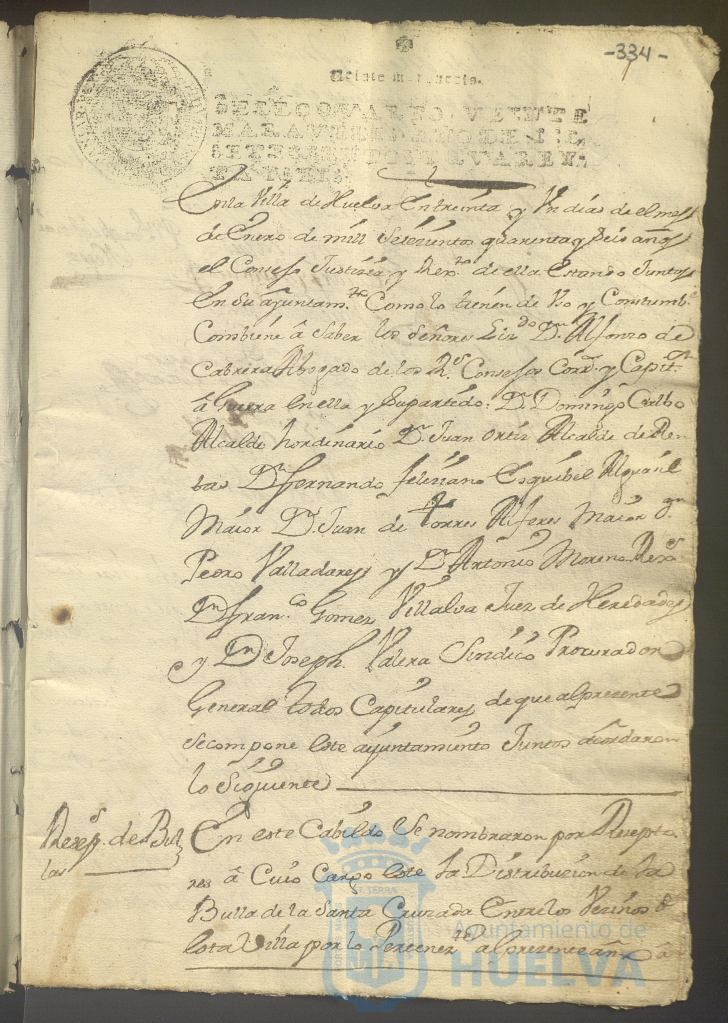 -334-
Veinte maravedis.
SELLO QVARTO, VEINTE
MARAVEDIS, AÑO DE MIL
SETECIENTOS Y QVAREN-
TA Y SEIS.
En la Villa de Huelva En treinta y Vn dias de el mes
de Enero de mill Setezientos quarenta y Seis años
el Consejo Justizia y Rex.to de ella Estando Juntos
en Su ayuntam.to Como lo tienen de Vso y Constumb.e
Combiene â Saber los Señores Liz.do D.n Alfonzo de
Cabrera Abogado de los R.s Consejos Corr.r y Capit.n
â Guerra En ella y Su partido: D.n Domingo
Alcalde hordinario D.n Juan Ortiz Alcalde de Ren
tas D.n fernando feliziano Esquibel Alguazil
Maior D.n Juan de torres Alferes Maior D.n
Pedro Valladares y D.n Antonio Moreno Rex.s
D.n fran.co Gomez Villalva Juez de Heredades
y D.n Joseph Valera Sindico Procurador
General todos Capitulares de que al presente
se compone este ayuntamiento Juntos acordaron
lo Siguiente
Rezep.s de Bul
las
En este Cabildo Se nombraron por Rezepto
res â Cuio Cargo este la Distribuzion de la
Bulla de la Santa Cruzada Entre los Vezinos de
esta Villa por lo Pertenez.te al presente año
Ayuntamiento de
HUELVA